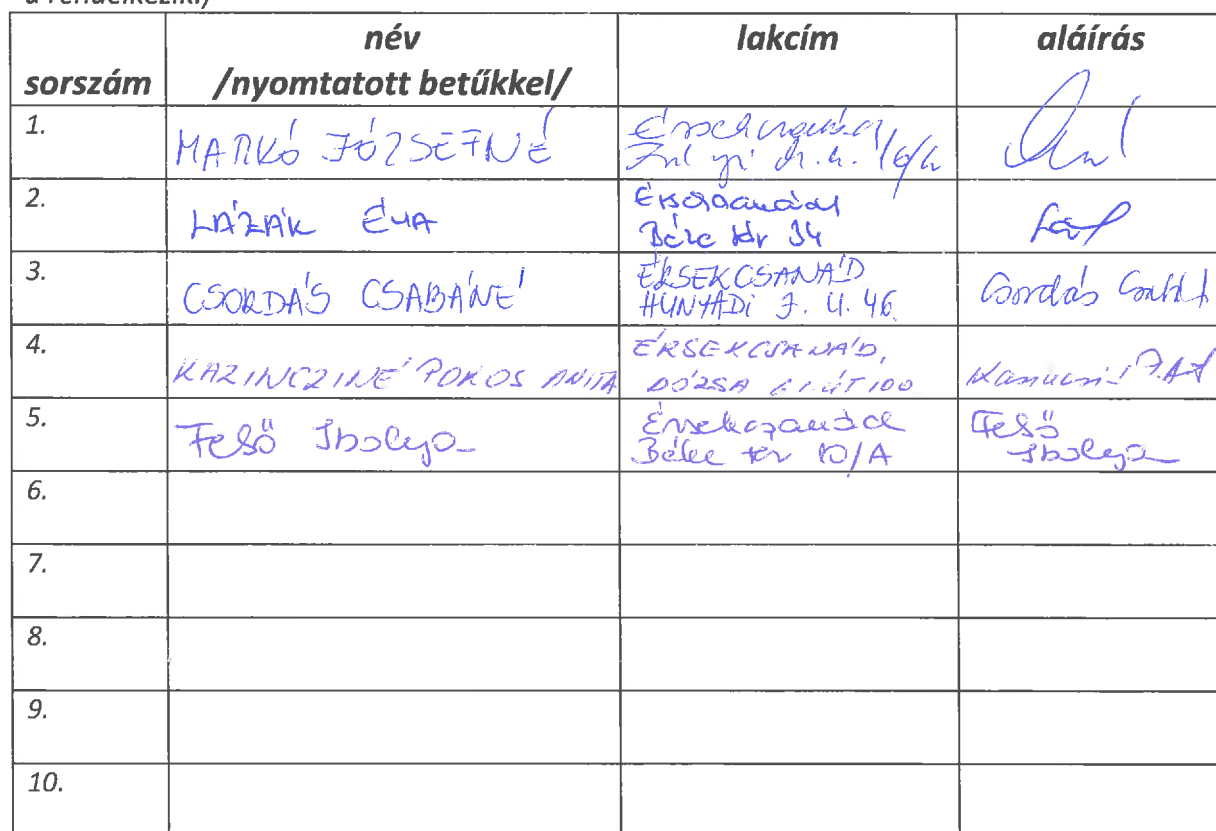 a rendelkezik.)
sorszám név /nyomtatott betűkkel/ lakcím aláírás
1. MARKÓ JÓZSEFNÉ Érsekcsanád
2. LÁZÁR ÉVA Érsekcsanád
Béke tér 34
3. CSORDÁS CSABÁNÉ ÉRSEKCSANÁD
HUNYADI J. U. 46. Csordás
4. KAZINCZINÉ POKOS ANITA ÉRSEKCSANÁD,
DÓZSA GY. ÚT 100
5. Felső Ibolya Érsekcsanád Felső
Béke tér 10/A Ibolya
6.
7.
8.
9.
10.